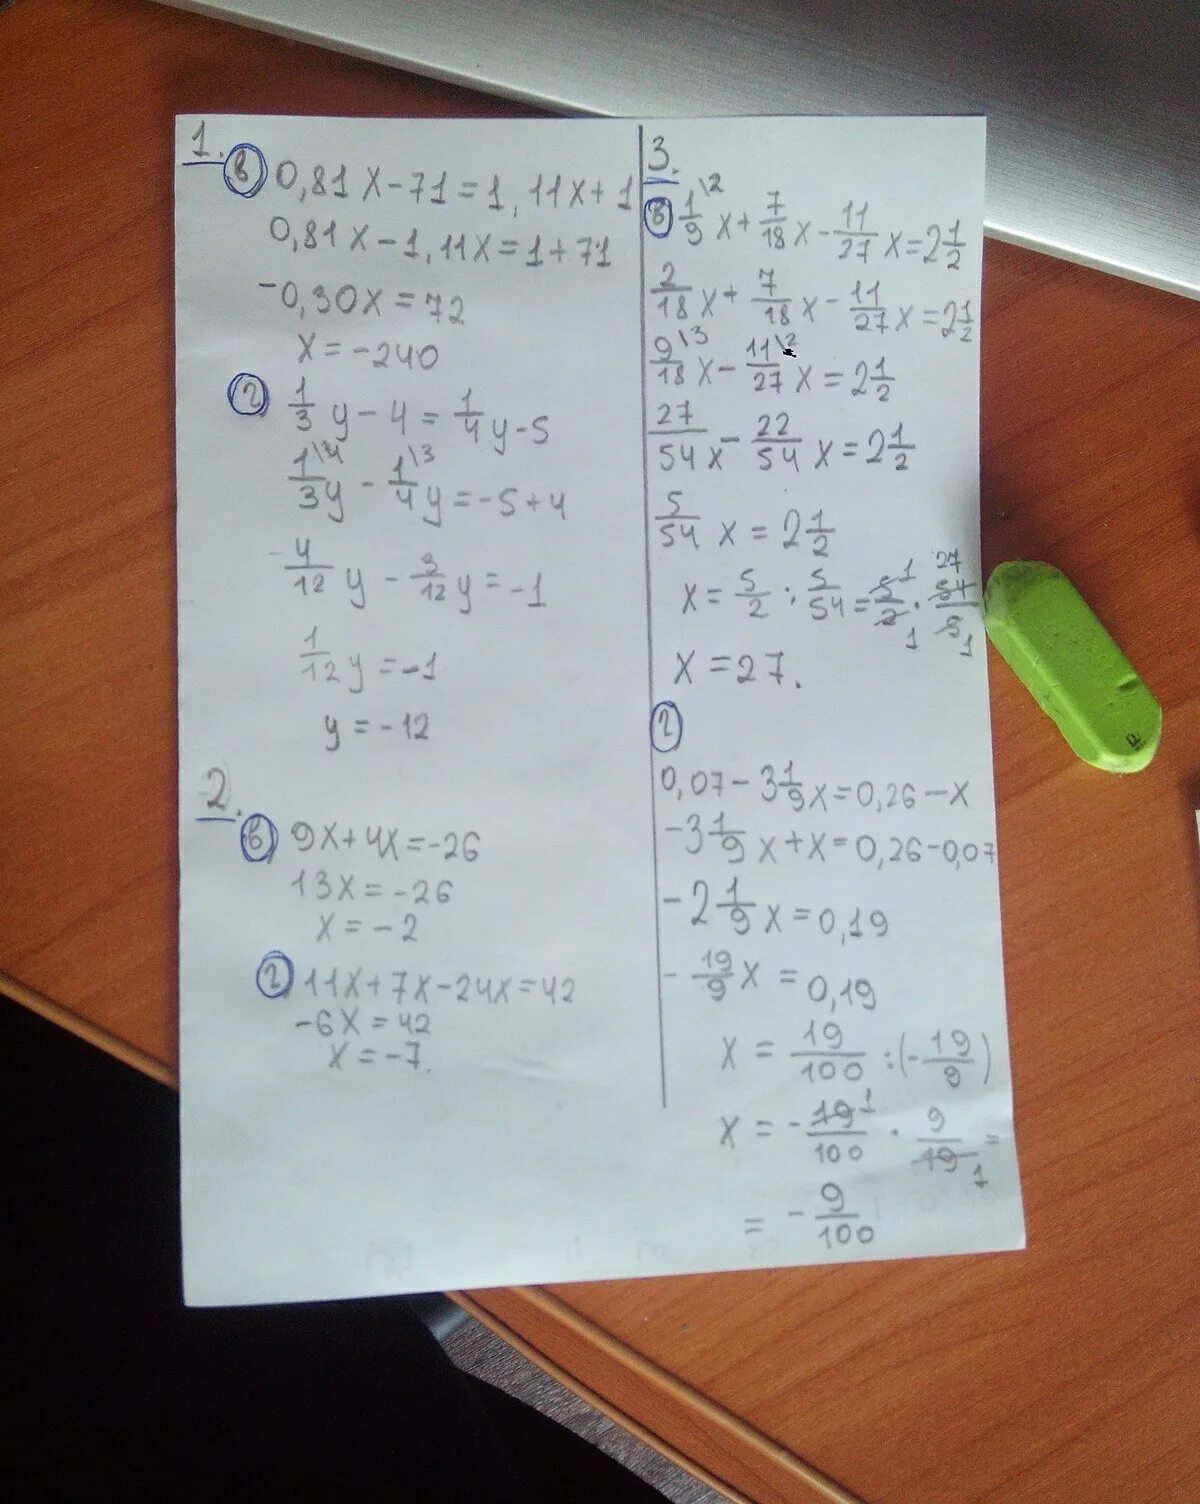 1.
в) 0,81x-71=1,11x+1
0,81x-1,11x=1+71
-0,30x=72
x=-240
г) 1/3 y-4=1/4 y-5
1/3\4 y - 1/4\3 y=-5+4
4/12 y - 3/12 y=-1
1/12 y=-1
y=-12
2.
в) 9x+4x=-26
13x=-26
x=-2
г) 11x+7x-24x=42
-6x=42
x=-7.
3.
в) 1/9\2 x+7/18 x-11/27 x=2 1/2
2/18 x+7/18 x-11/27 x=2 1/2
9/18\3 x-11/27\2 x=2 1/2
27/54 x-22/54 x=2 1/2
5/54 x=2 1/2
x=5/2 : 5/54=5/2 1 1 · 54/5 27 1
x=27.
г)
0,07-3 1/9 x=0,26-x
-3 1/9 x+x=0,26-0,07
-2 1/9 x=0,19
-19/9 x=0,19
x=19/100 :(-19/9)
x=-19/100 1 · 9/19 1 =
=-9/100